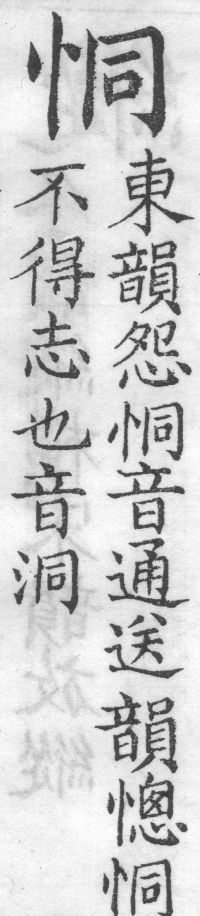 恫
東韻怨恫音通送韻愡恫
不得志也音洞